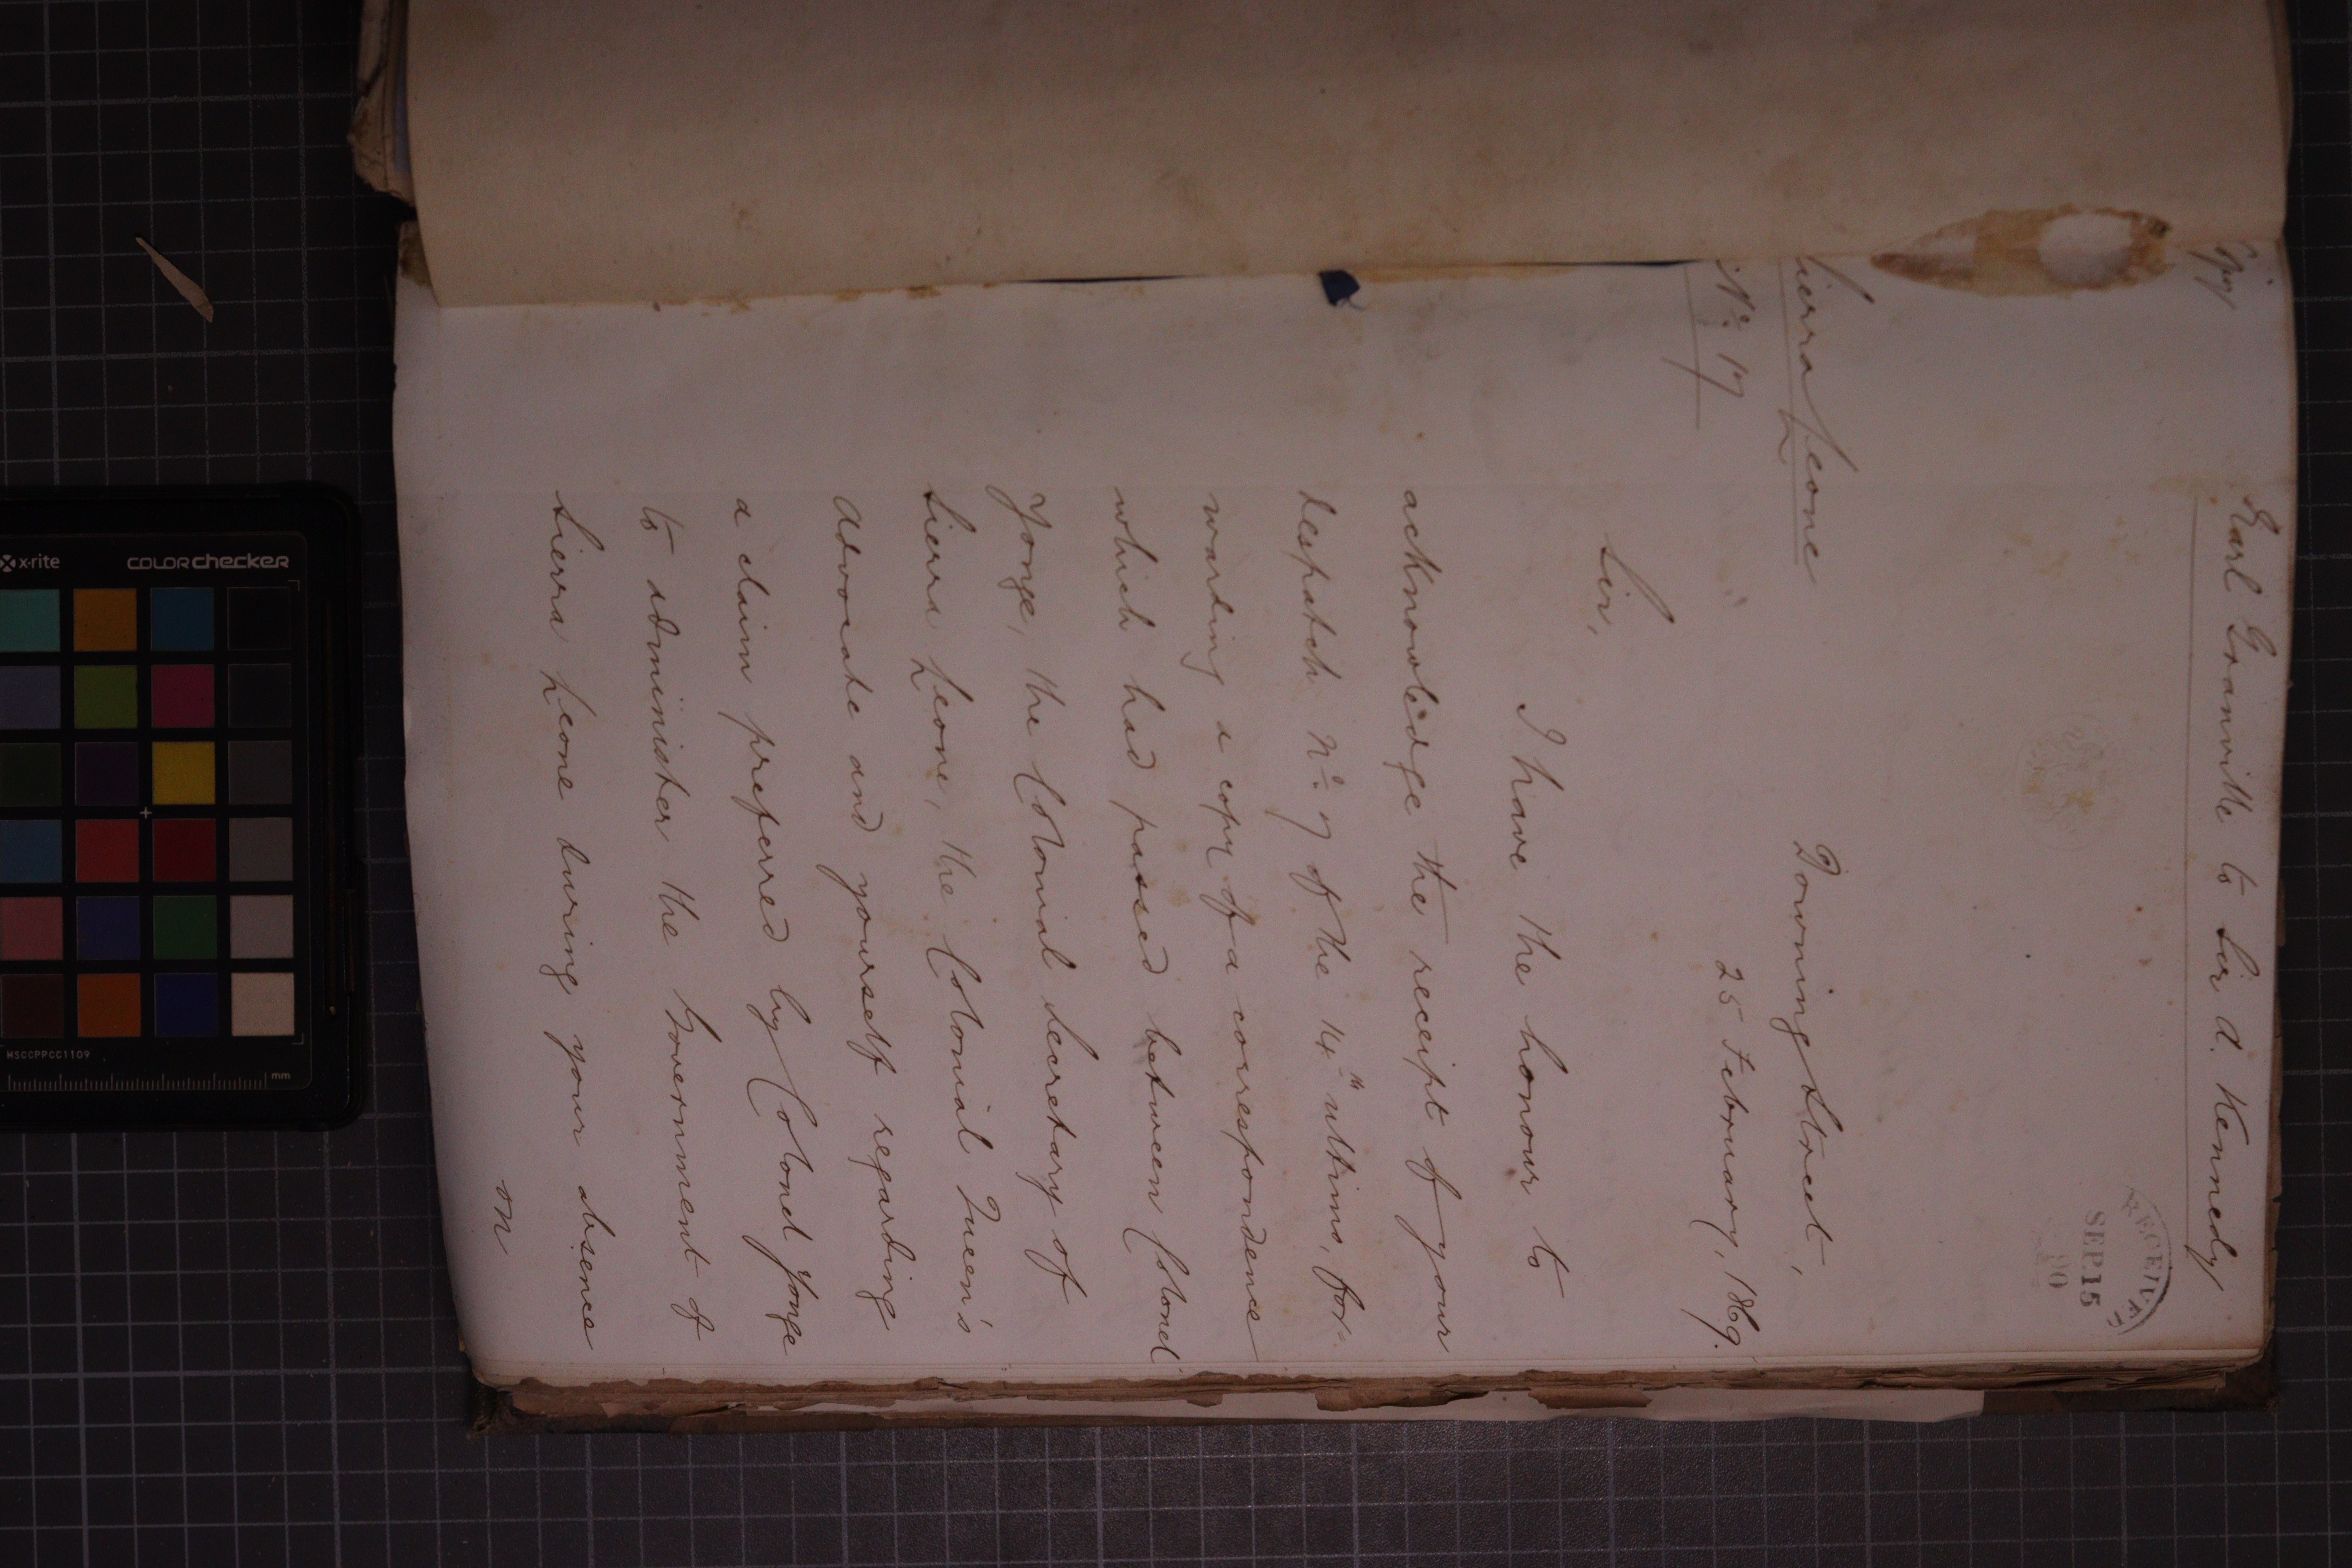 Copy
Earl Granville to Sir A. Kennedy
RECEIVE
SEP 15
Sierra Leone
Nº 17
Downing Street,
25 February, 1869.
Sir,
I have the honour to
acknowledge the receipt of your
despatch Nº 7 of the 14th ultimo, for-
warding a copy of a correspondence
which had passed between Colonel
Yonge, the Colonial Secretary of
Sierra Leone, the Colonial Queen's
Advocate and yourself regarding
a claim preferred by Colonel Yonge
to administer the Government of
Sierra Leone during your absence
on
x-rite
COLORchecker
MSCCPPCC1109
mm